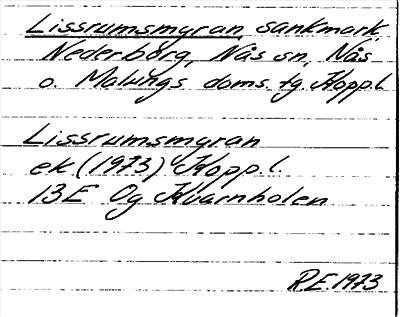 Lissrumsmyran, sankmark
Nederborg, Nås sn, Nås
o. Malungs doms. tg. Kopp.l.
Lissrumsmyran
ek (1973) Kopp.l.
13E Og Kvarnholen
R.E. 1973